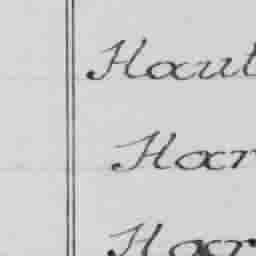 Haut
Har
Har